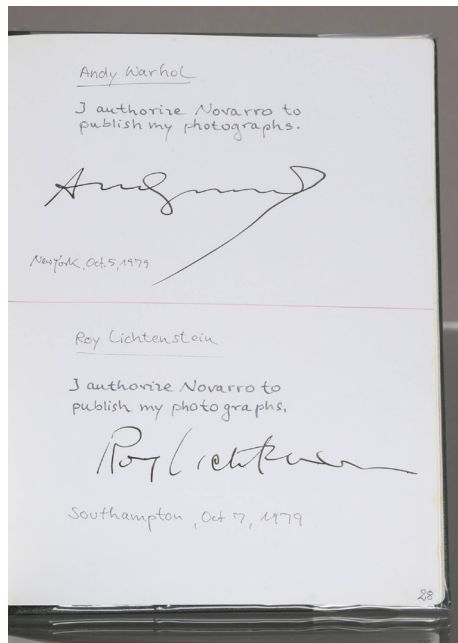 Andy Warhol
I authorize Novarro to
publish my photographs.
New York, Oct. 5, 1979
Roy Lichtenstein
I authorize Novarro to
publish my photographs.
Roy Lichtenstein
Southampton, Oct 7, 1979
28